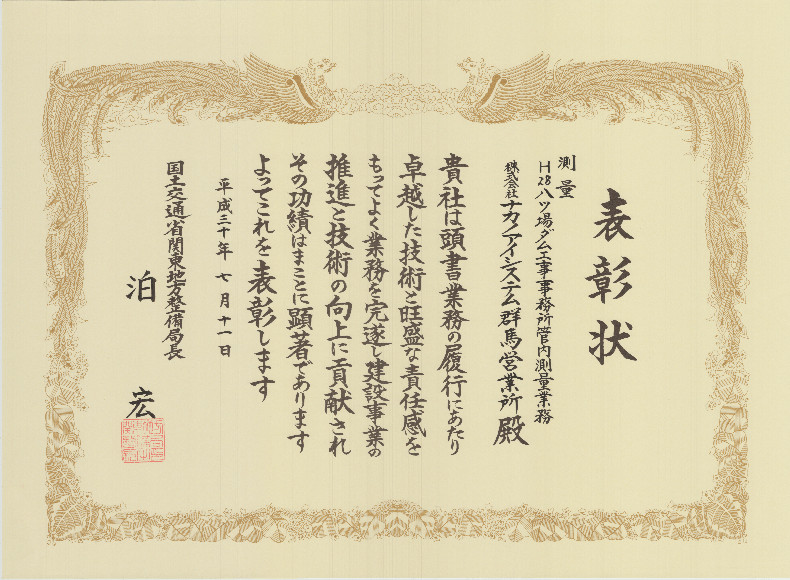 表彰状
測量
H28八ツ場ダム工事事務所管内測量業務
株式会社ナカノアイシステム群馬営業所殿
貴社は頭書業務の履行にあたり
卓越した技術と旺盛な責任感を
もってよく業務を完遂し建設事業の
推進と技術の向上に貢献され
その功績はまことに顕著であります
よってこれを表彰します
平成三十年七月十一日
国土交通省関東地方整備局長
泊宏